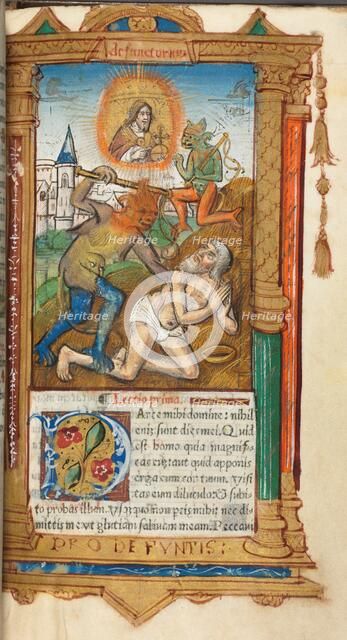 defunctorum
Lectio prima.
Parce mihi domine: nihil
enim sunt dies mei. Quid
est homo quia magnifi
cas eum: aut quid apponis
erga eum cor tuum. Visi
tas eum diluculo: & subi
to probas illum. Vsquequo non parcis mihi nec di
mittis me vt glutiam saliuam meam. Peccaui
PRO DEFVNTIS: